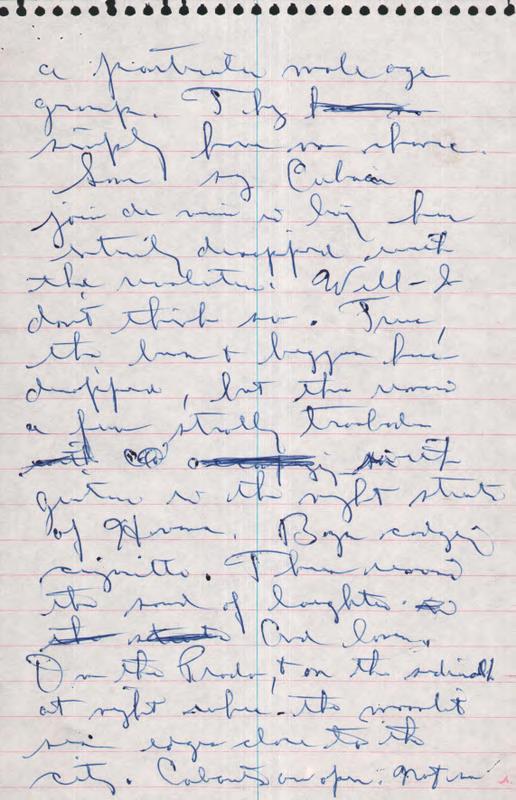 a particular male age
group. They
simply have no choice.
Some say Cuban
joie de vivre is
entirely disappeared with
the revolution. Well - I
don't think so. True,
the bars & beggars have
disappeared, but there
a few strolling troubadors
with
guitars in the night streets
of Havana. Boys cadging
cigarettes. There
the sound of laughter.
And lovers
On the Prado, & on the
at night where the moonlit
sea edges close to the
city. Cabarets are open. Not in